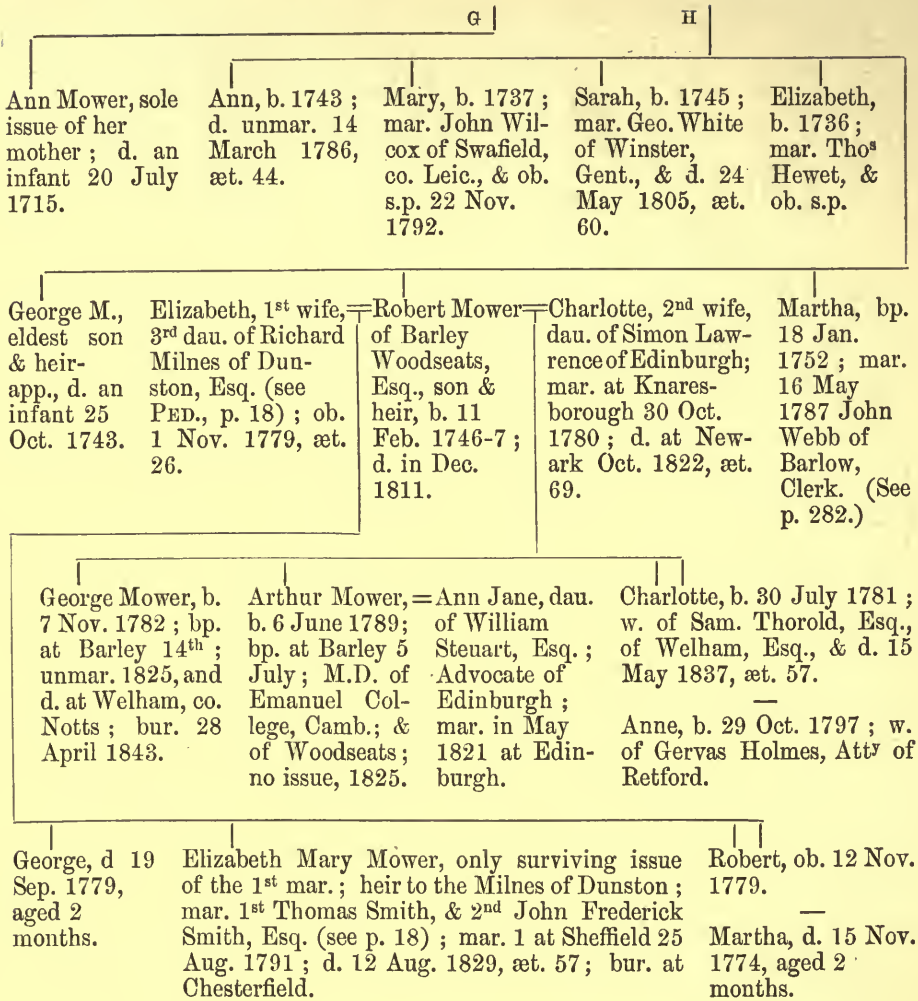 G H
Ann Mower, sole
issue of her
mother ; d. an
infant 20 July
1715.
Ann, b. 1743 ;
d. unmar. 14
March 1786,
æt. 44.
Mary, b. 1737 ;
mar. John Wil-
cox of Swafield,
co. Leic., & ob.
s.p. 22 Nov.
1792.
Sarah, b. 1745 ;
mar. Geo. White
of Winster,
Gent., & d. 24
May 1805, æt.
60.
Elizabeth,
b. 1736 ;
mar. Thoˢ
Hewet, &
ob. s.p.
George M.,
eldest son
& heir-
app., d. an
infant 25
Oct. 1743.
Elizabeth, 1ˢᵗ wife,=
3ʳᵈ dau. of Richard
Milnes of Dun-
ston, Esq. (see
PED., p. 18) ; ob.
1 Nov. 1779, æt.
26.
Robert Mower=
of Barley
Woodseats,
Esq., son &
heir, b. 11
Feb. 1746-7 ;
d. in Dec.
1811.
Charlotte, 2ⁿᵈ wife,
dau. of Simon Law-
rence of Edinburgh;
mar. at Knares-
borough 30 Oct.
1780 ; d. at New-
ark Oct. 1822, æt.
69.
Martha, bp.
18 Jan.
1752 ; mar.
16 May
1787 John
Webb of
Barlow,
Clerk. (See
p. 282.)
George Mower, b.
7 Nov. 1782 ; bp.
at Barley 14ᵗʰ ;
unmar. 1825, and
d. at Welham, co.
Notts ; bur. 28
April 1843.
Arthur Mower,=
b. 6 June 1789;
bp. at Barley 5
July ; M.D. of
Emanuel Col-
lege, Camb.; &
of Woodseats ;
no issue, 1825.
Ann Jane, dau.
of William
Steuart, Esq. ;
Advocate of
Edinburgh ;
mar. in May
1821 at Edin-
burgh.
Charlotte, b. 30 July 1781 ;
w. of Sam. Thorold, Esq.,
of Welham, Esq., & d. 15
May 1837, æt. 57.
—
Anne, b. 29 Oct. 1797 ; w.
of Gervas Holmes, Attʸ of
Retford.
George, d 19
Sep. 1779,
aged 2
months.
Elizabeth Mary Mower, only surviving issue
of the 1ˢᵗ mar. ; heir to the Milnes of Dunston ;
mar. 1ˢᵗ Thomas Smith, & 2ⁿᵈ John Frederick
Smith, Esq. (see p. 18) ; mar. 1 at Sheffield 25
Aug. 1791 ; d. 12 Aug. 1829, æt. 57 ; bur. at
Chesterfield.
Robert, ob. 12 Nov.
1779.
—
Martha, d. 15 Nov.
1774, aged 2
months.